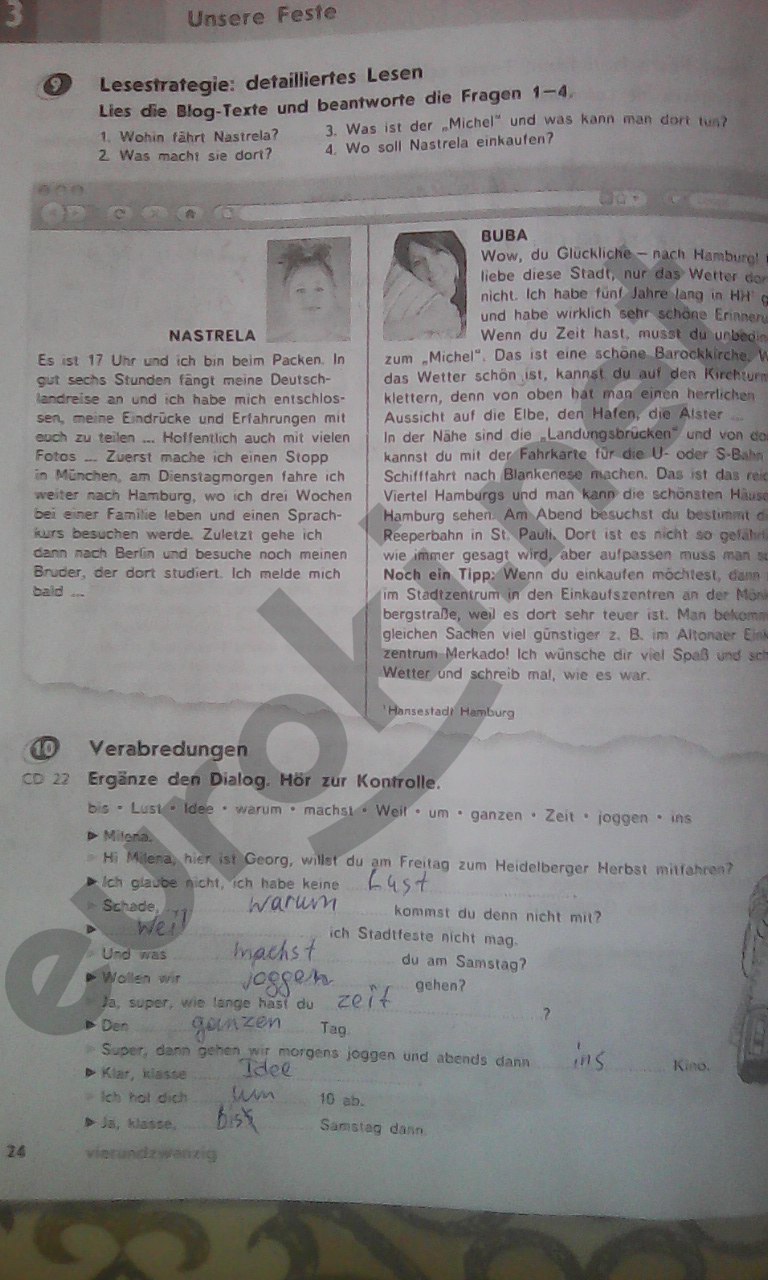 3
Unsere Feste
9
Lesestrategie: detailliertes Lesen
Lies die Blog-Texte und beantworte die Fragen 1—4.
1. Wohin fährt Nastrela?
2. Was macht sie dort?
3. Was ist der „Michel" und was kann man dort tun?
4. Wo soll Nastrela einkaufen?
NASTRELA
Es ist 17 Uhr und ich bin beim Packen. In
gut sechs Stunden fängt meine Deutsch-
landreise an und ich habe mich entschlos-
sen, meine Eindrücke und Erfahrungen mit
euch zu teilen ... Hoffentlich auch mit vielen
Fotos ... Zuerst mache ich einen Stopp
in München, am Dienstagmorgen fahre ich
weiter nach Hamburg, wo ich drei Wochen
bei einer Familie leben und einen Sprach-
kurs besuchen werde. Zuletzt gehe ich
dann nach Berlin und besuche noch meinen
Bruder, der dort studiert. Ich melde mich
bald ...
BUBA
Wow, du Glückliche — nach Hamburg!
liebe diese Stadt, nur das Wetter
nicht. Ich habe fünf Jahre lang in HH¹
und habe wirklich sehr schöne
Wenn du Zeit hast, musst du
zum „Michel". Das ist eine schöne Barockkirche.
das Wetter schön ist, kannst du auf den
klettern, denn von oben hat man einen herrlichen
Aussicht auf die Elbe, den Hafen, die Alster ...
In der Nähe sind die „Landungsbrücken" und von
kannst du mit der Fahrkarte für die U- oder S-Bahn
Schifffahrt nach Blankenese machen. Das ist das
Viertel Hamburgs und man kann die schönsten
Hamburg sehen. Am Abend besuchst du bestimmt
Reeperbahn in St. Pauli. Dort ist es nicht so
wie immer gesagt wird, aber aufpassen muss man
Noch ein Tipp: Wenn du einkaufen möchtest, dann
im Stadtzentrum in den Einkaufszentren an der
bergstraße, weil es dort sehr teuer ist. Man
gleichen Sachen viel günstiger z. B. im Altonaer
zentrum Merkado! Ich wünsche dir viel Spaß und
Wetter und schreib mal, wie es war.
¹Hansestadt Hamburg
10
Verabredungen
CD 22 Ergänze den Dialog. Hör zur Kontrolle.
bis • Lust • Idee • warum • machst • Weil • um • ganzen • Zeit • joggen • ins
Milena.
Hi Milena, hier ist Georg, willst du am Freitag zum Heidelberger Herbst mitfahren?
Ich glaube nicht, ich habe keine Lust
Schade, warum kommst du denn nicht mit?
weil ich Stadtfeste nicht mag.
Und was machst du am Samstag?
Wollen wir joggen gehen?
Ja, super, wie lange hast du zeit ?
Den ganzen Tag
Super, dann gehen wir morgens joggen und abends dann ins Kino.
Klar, klasse Idee
Ich hol dich um 10 ab.
Ja, klasse, bis Samstag dann.
24 vierundzwanzig
euroki.net